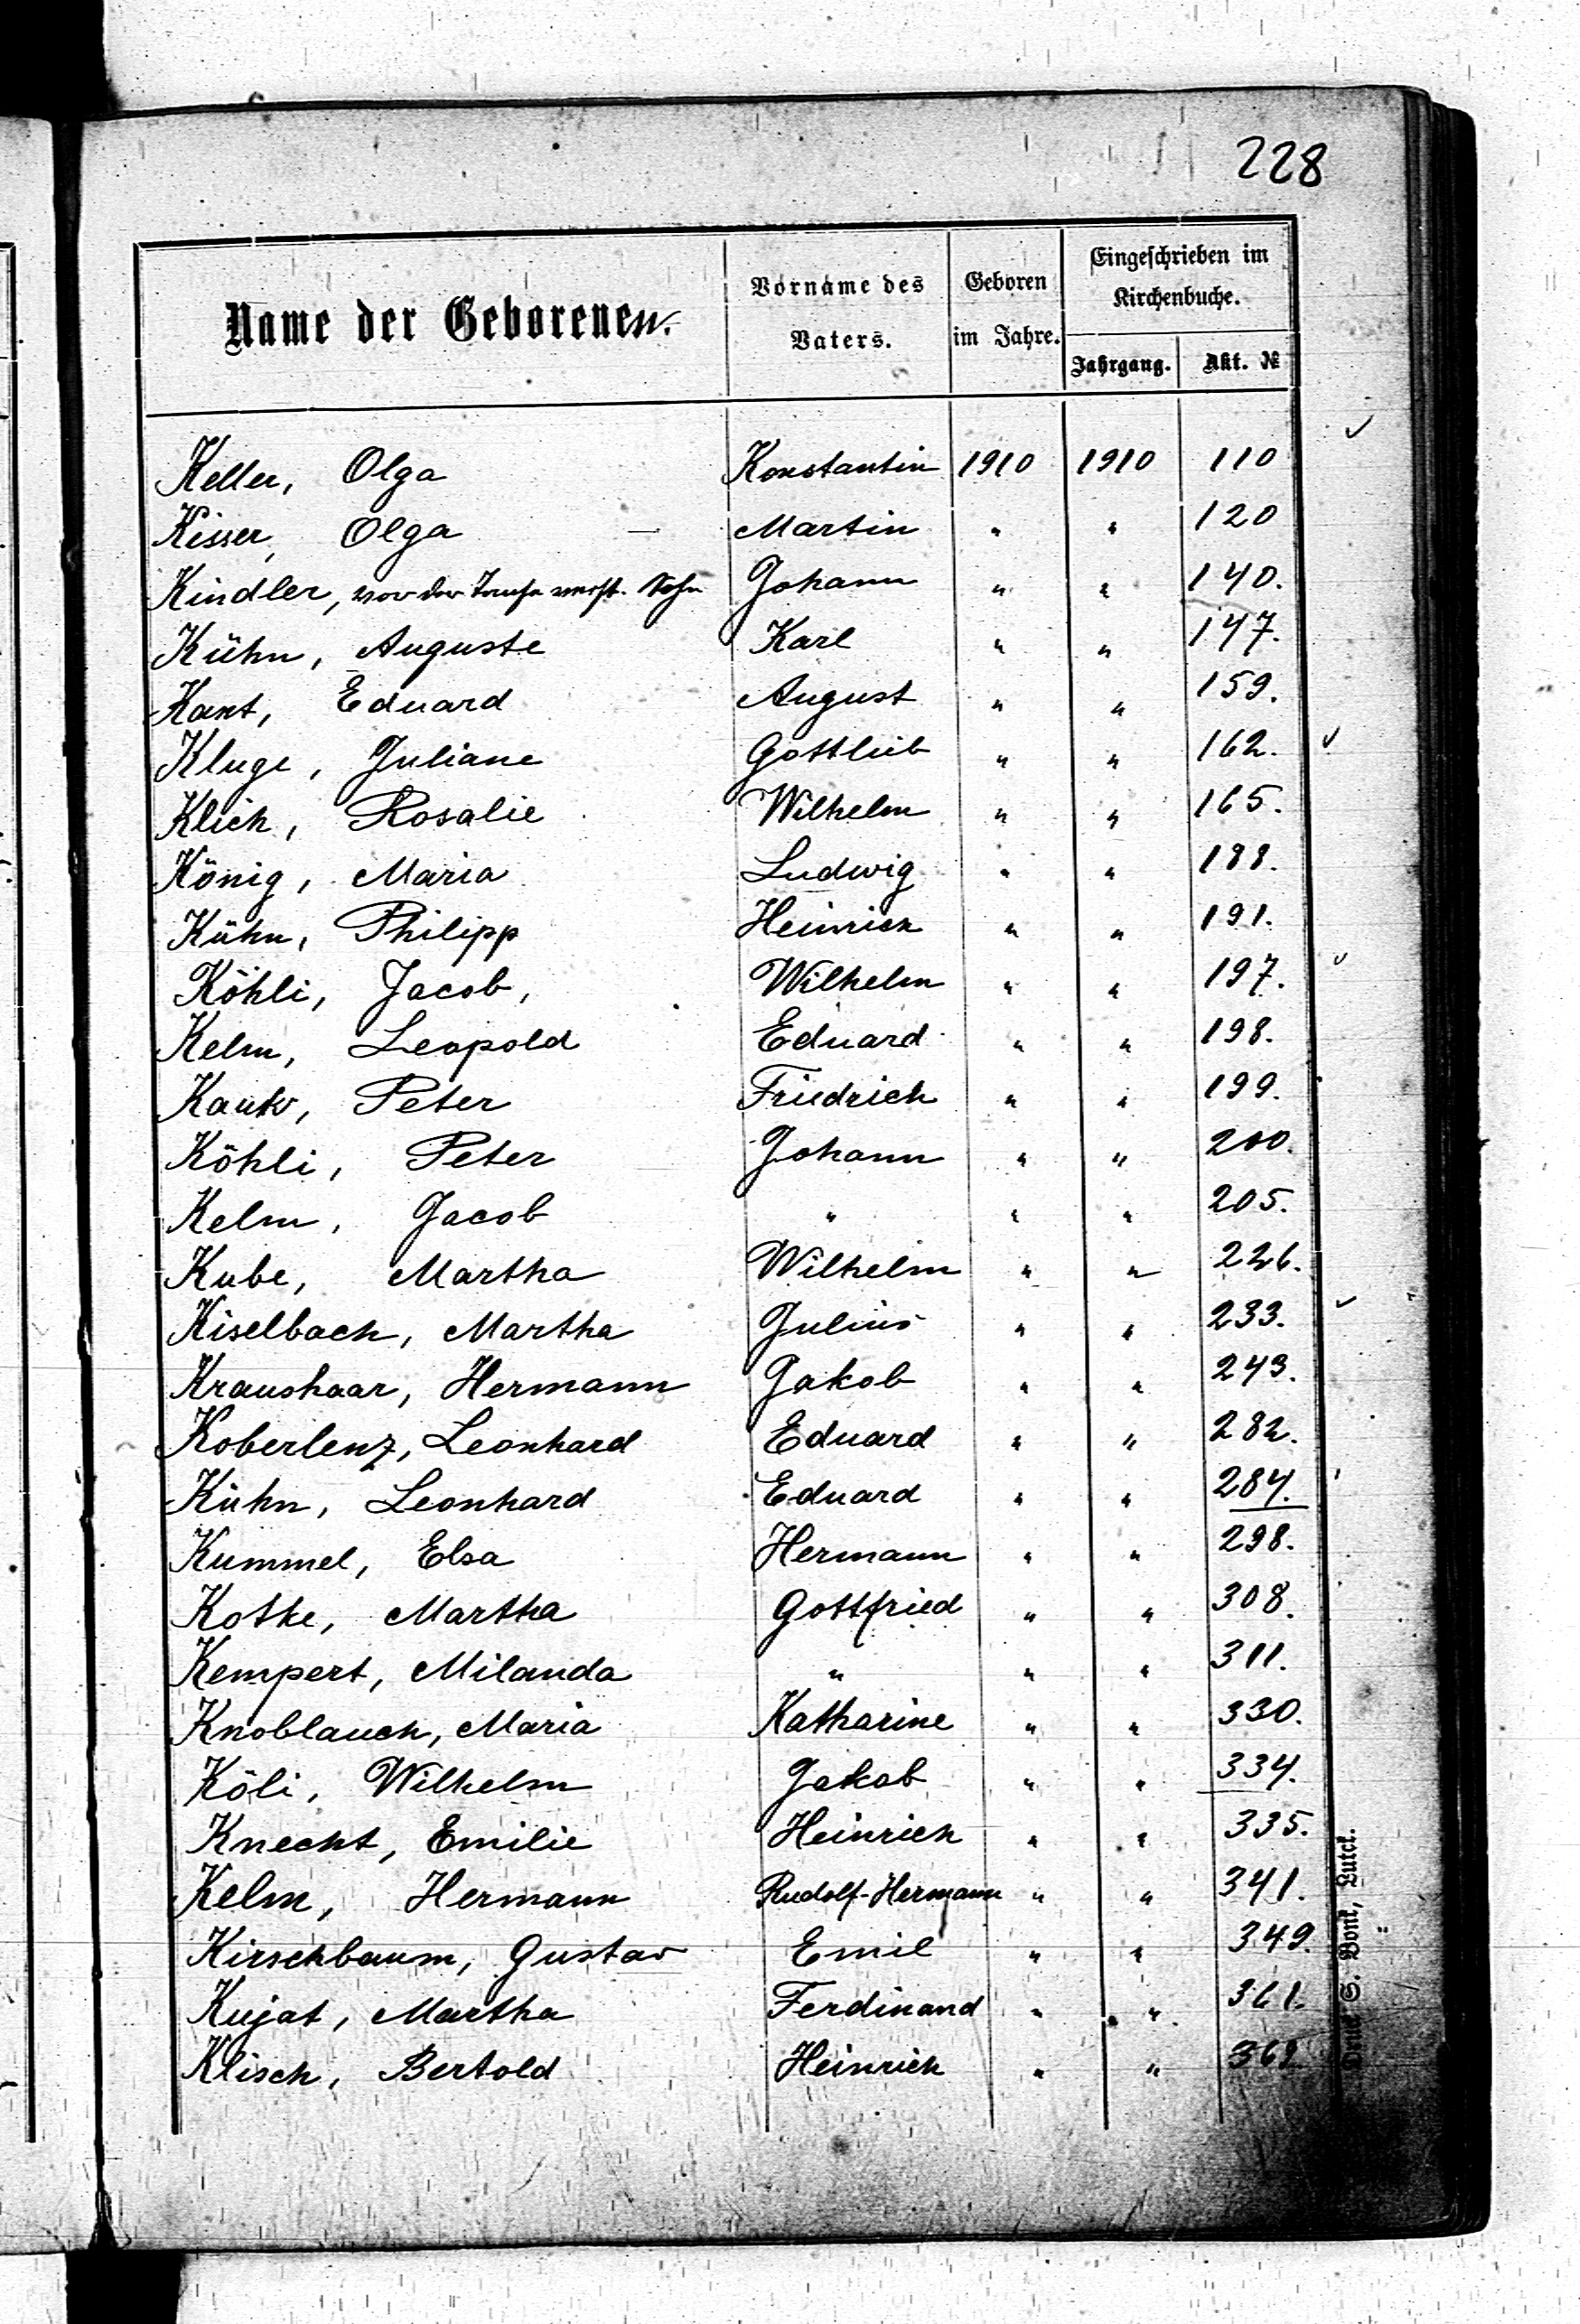 228
Name der Geborenen. Vorname des Vaters. Geboren im Jahre. Eingeschrieben im Kirchenbuche.
Jahrgang. Akt. №
Keller, Olga Konstantin 1910 1910 110
Kisser, Olga — Martin " " 120
Kindler, vor der Taufe verst. Sohn Johann " " 140.
Kühn, Auguste Karl " " 147.
Kant, Eduard August " " 159.
Kluge, Juliane Gottlieb " " 162.
Klich, Rosalie Wilhelm " " 165.
König, Maria Ludwig " " 188.
Kühn, Philipp Heinrich " " 191.
Köhli, Jacob, Wilhelm " " 197.
Kelm, Leopold Eduard " " 198.
Peter Friedrich " " 199.
Köhli, Peter Johann " " 200.
Kelm, Jacob " " " 205.
Kube, Martha Wilhelm " " 226.
Kiselbach, Martha Julius " " 233.
Kraushaar, Hermann Jakob " " 243.
Koberlenz, Leonhard Eduard " " 282.
Kühn, Leonhard Eduard " " 284.
Kummel, Elsa Hermann " " 298.
Kotke, Martha Gottfried " " 308.
Kempert, Milanda " " " 311.
Knoblauch, Maria Katharine " " 330.
Köli, Wilhelm Jakob " " 334.
Knecht, Emilie Heinrich " " 335.
Kelm, Hermann Rudolf-Hermann " " 341.
Kirschbaum, Gustav Emil " " 349.
Kujat, Martha Ferdinand " " 361.
Klisch, Bertold Heinrich " "
Druck S. Bonk, Lutck.